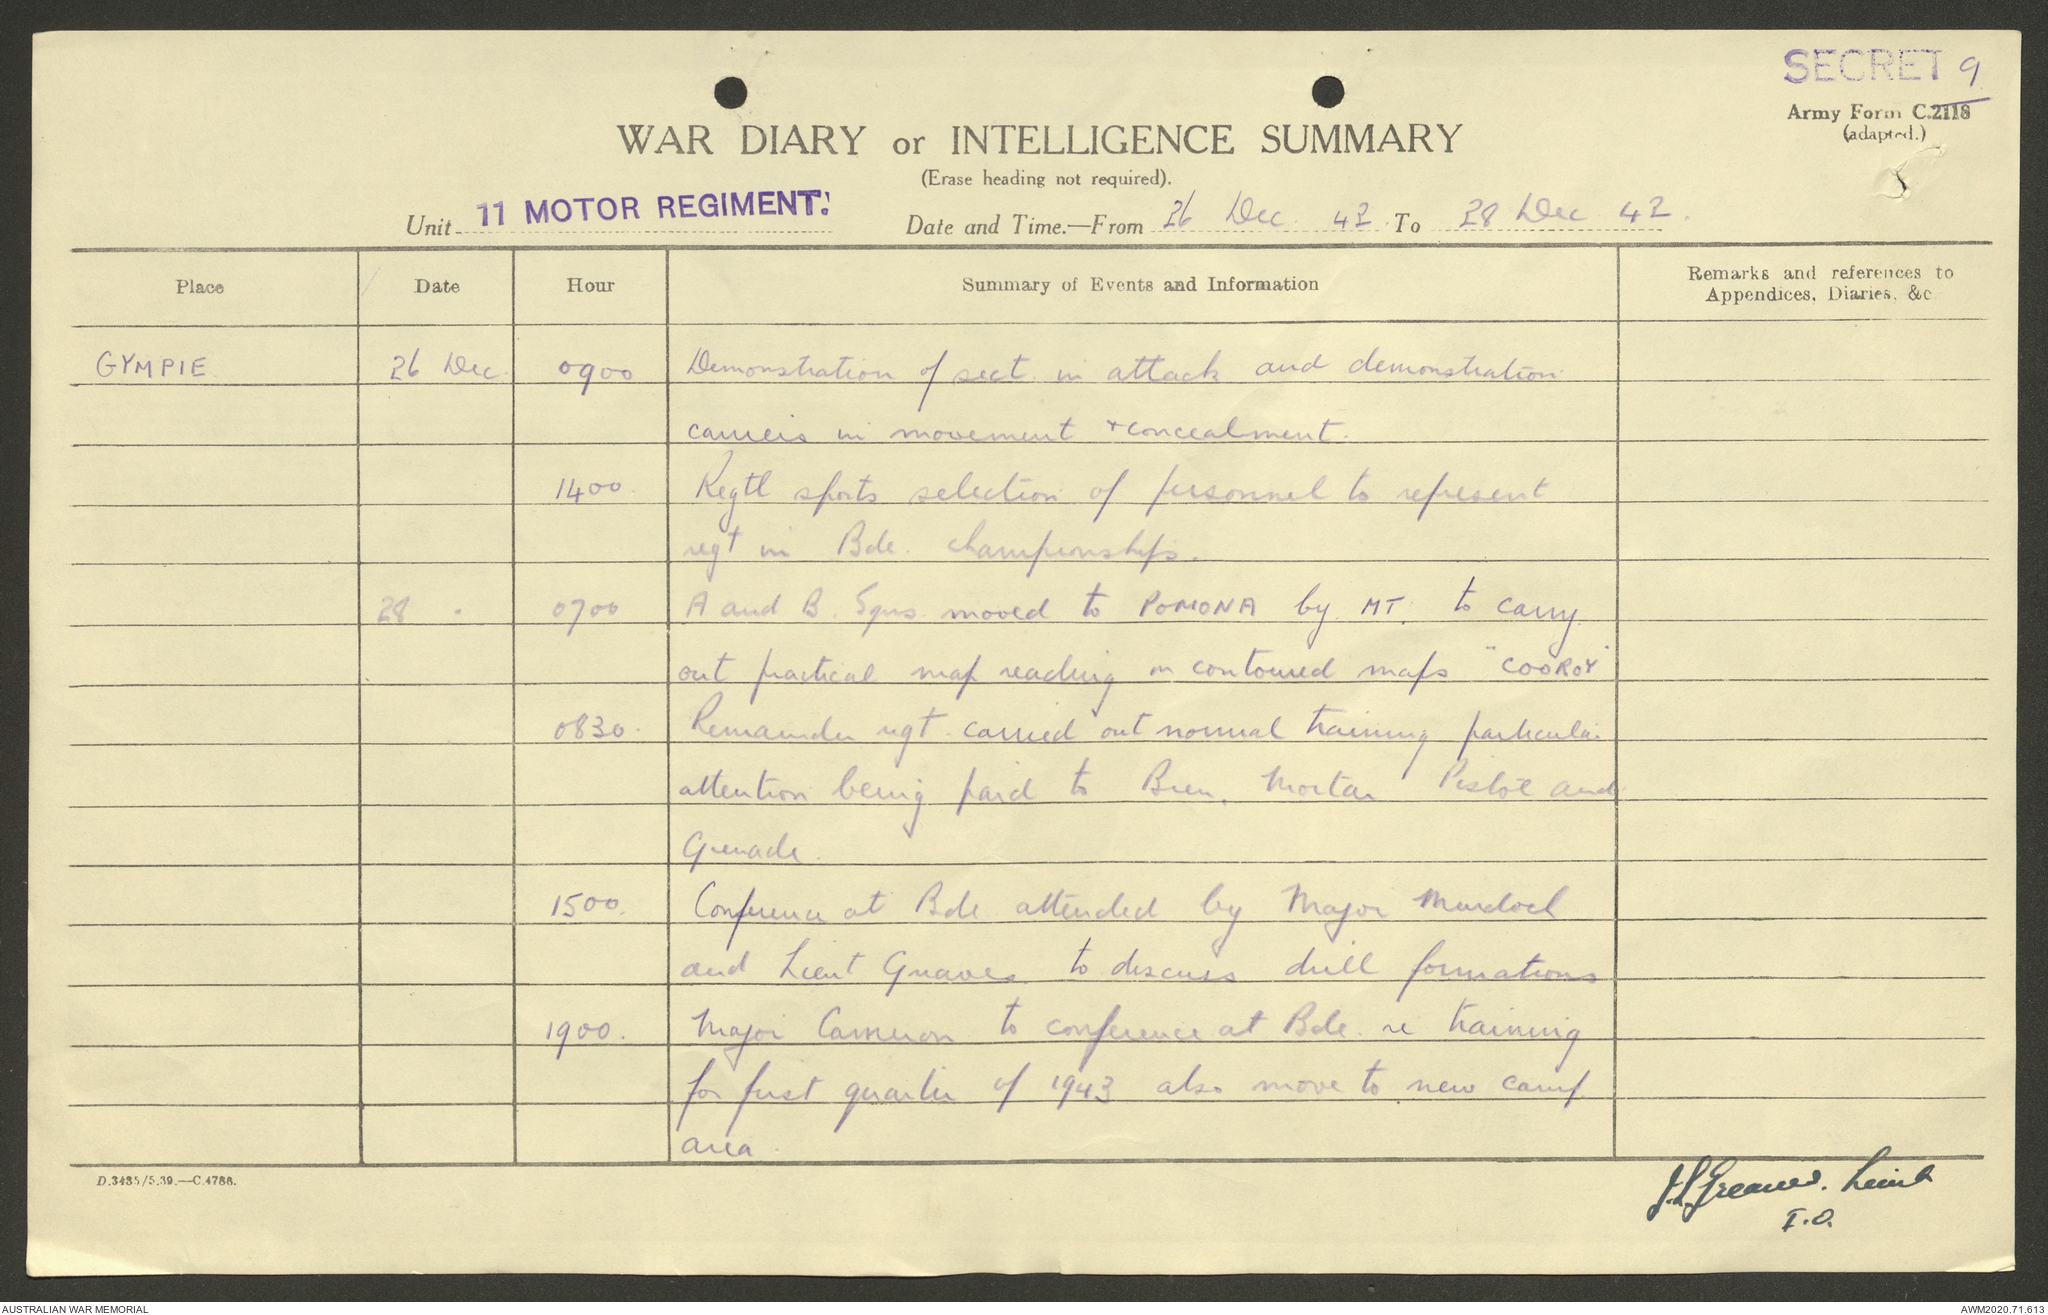 SECRET 9
Army Form C.2118
(adapted.)
WAR DIARY or INTELLIGENCE SUMMARY
(Erase heading not required).
Unit 11 MOTOR REGIMENT. Date and Time.—From 26 Dec. 42 To 28 Dec 42.
Place Date Hour Summary of Events and Information Remarks and references to
Appendices, Diaries, &c
GYMPIE 26 Dec 0900 Demonstration of sect. in attack and demonstration
carriers in movement + concealment.
1400 Regtl sports selection of personnel to represent
regt in Bde. championships.
28 " 0700 A and B. Sqns. moved to POMONA by MT. to carry
out practical map reading on contoured maps "COOROY"
0830. Remainder regt. carried out normal training particular
attention being paid to Bren, Mortar Pistol and
Grenade.
1500. Conference at Bde attended by Major Murdoch
and Lieut Greaves to discuss drill formations
1900. Major Cameron to conference at Bde. re training
for first quarter of 1943 also move to new camp
area.
D.3435/5.39.—C.4786.
J.L. Greaves. Lieut
I.O.
AUSTRALIAN WAR MEMORIAL AWM2020.71.613